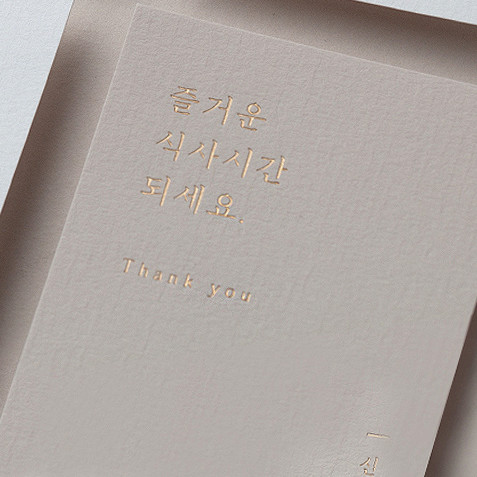 즐거운
식사시간
되세요.
Thank you
신